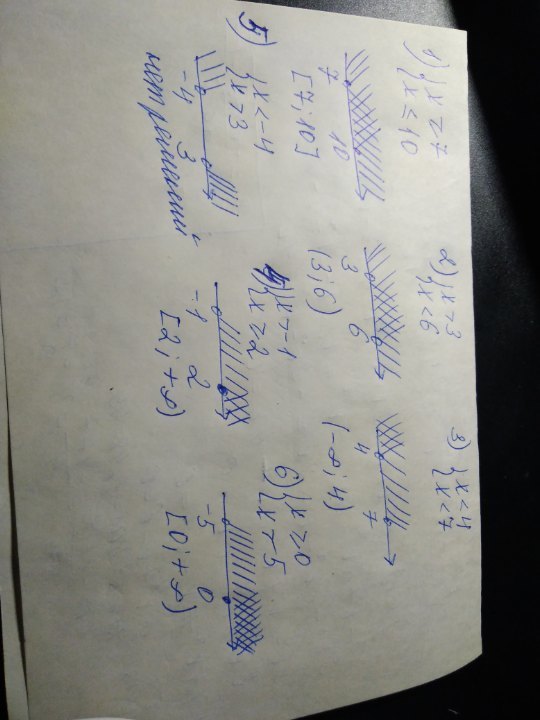 1) { x ≥ 7
{ x ≤ 10
7 10
[7; 10]
2) { x > 3
{ x < 6
3 6
(3; 6)
3) { x < 4
{ x < 7
4 7
(-∞; 4)
5) { x < -4
{ x > 3
-4 3
нет решений
4) { x > -1
{ x ≥ 2
-1 2
[2; +∞)
6) { x ≥ 0
{ x > -5
-5 0
[0; +∞)